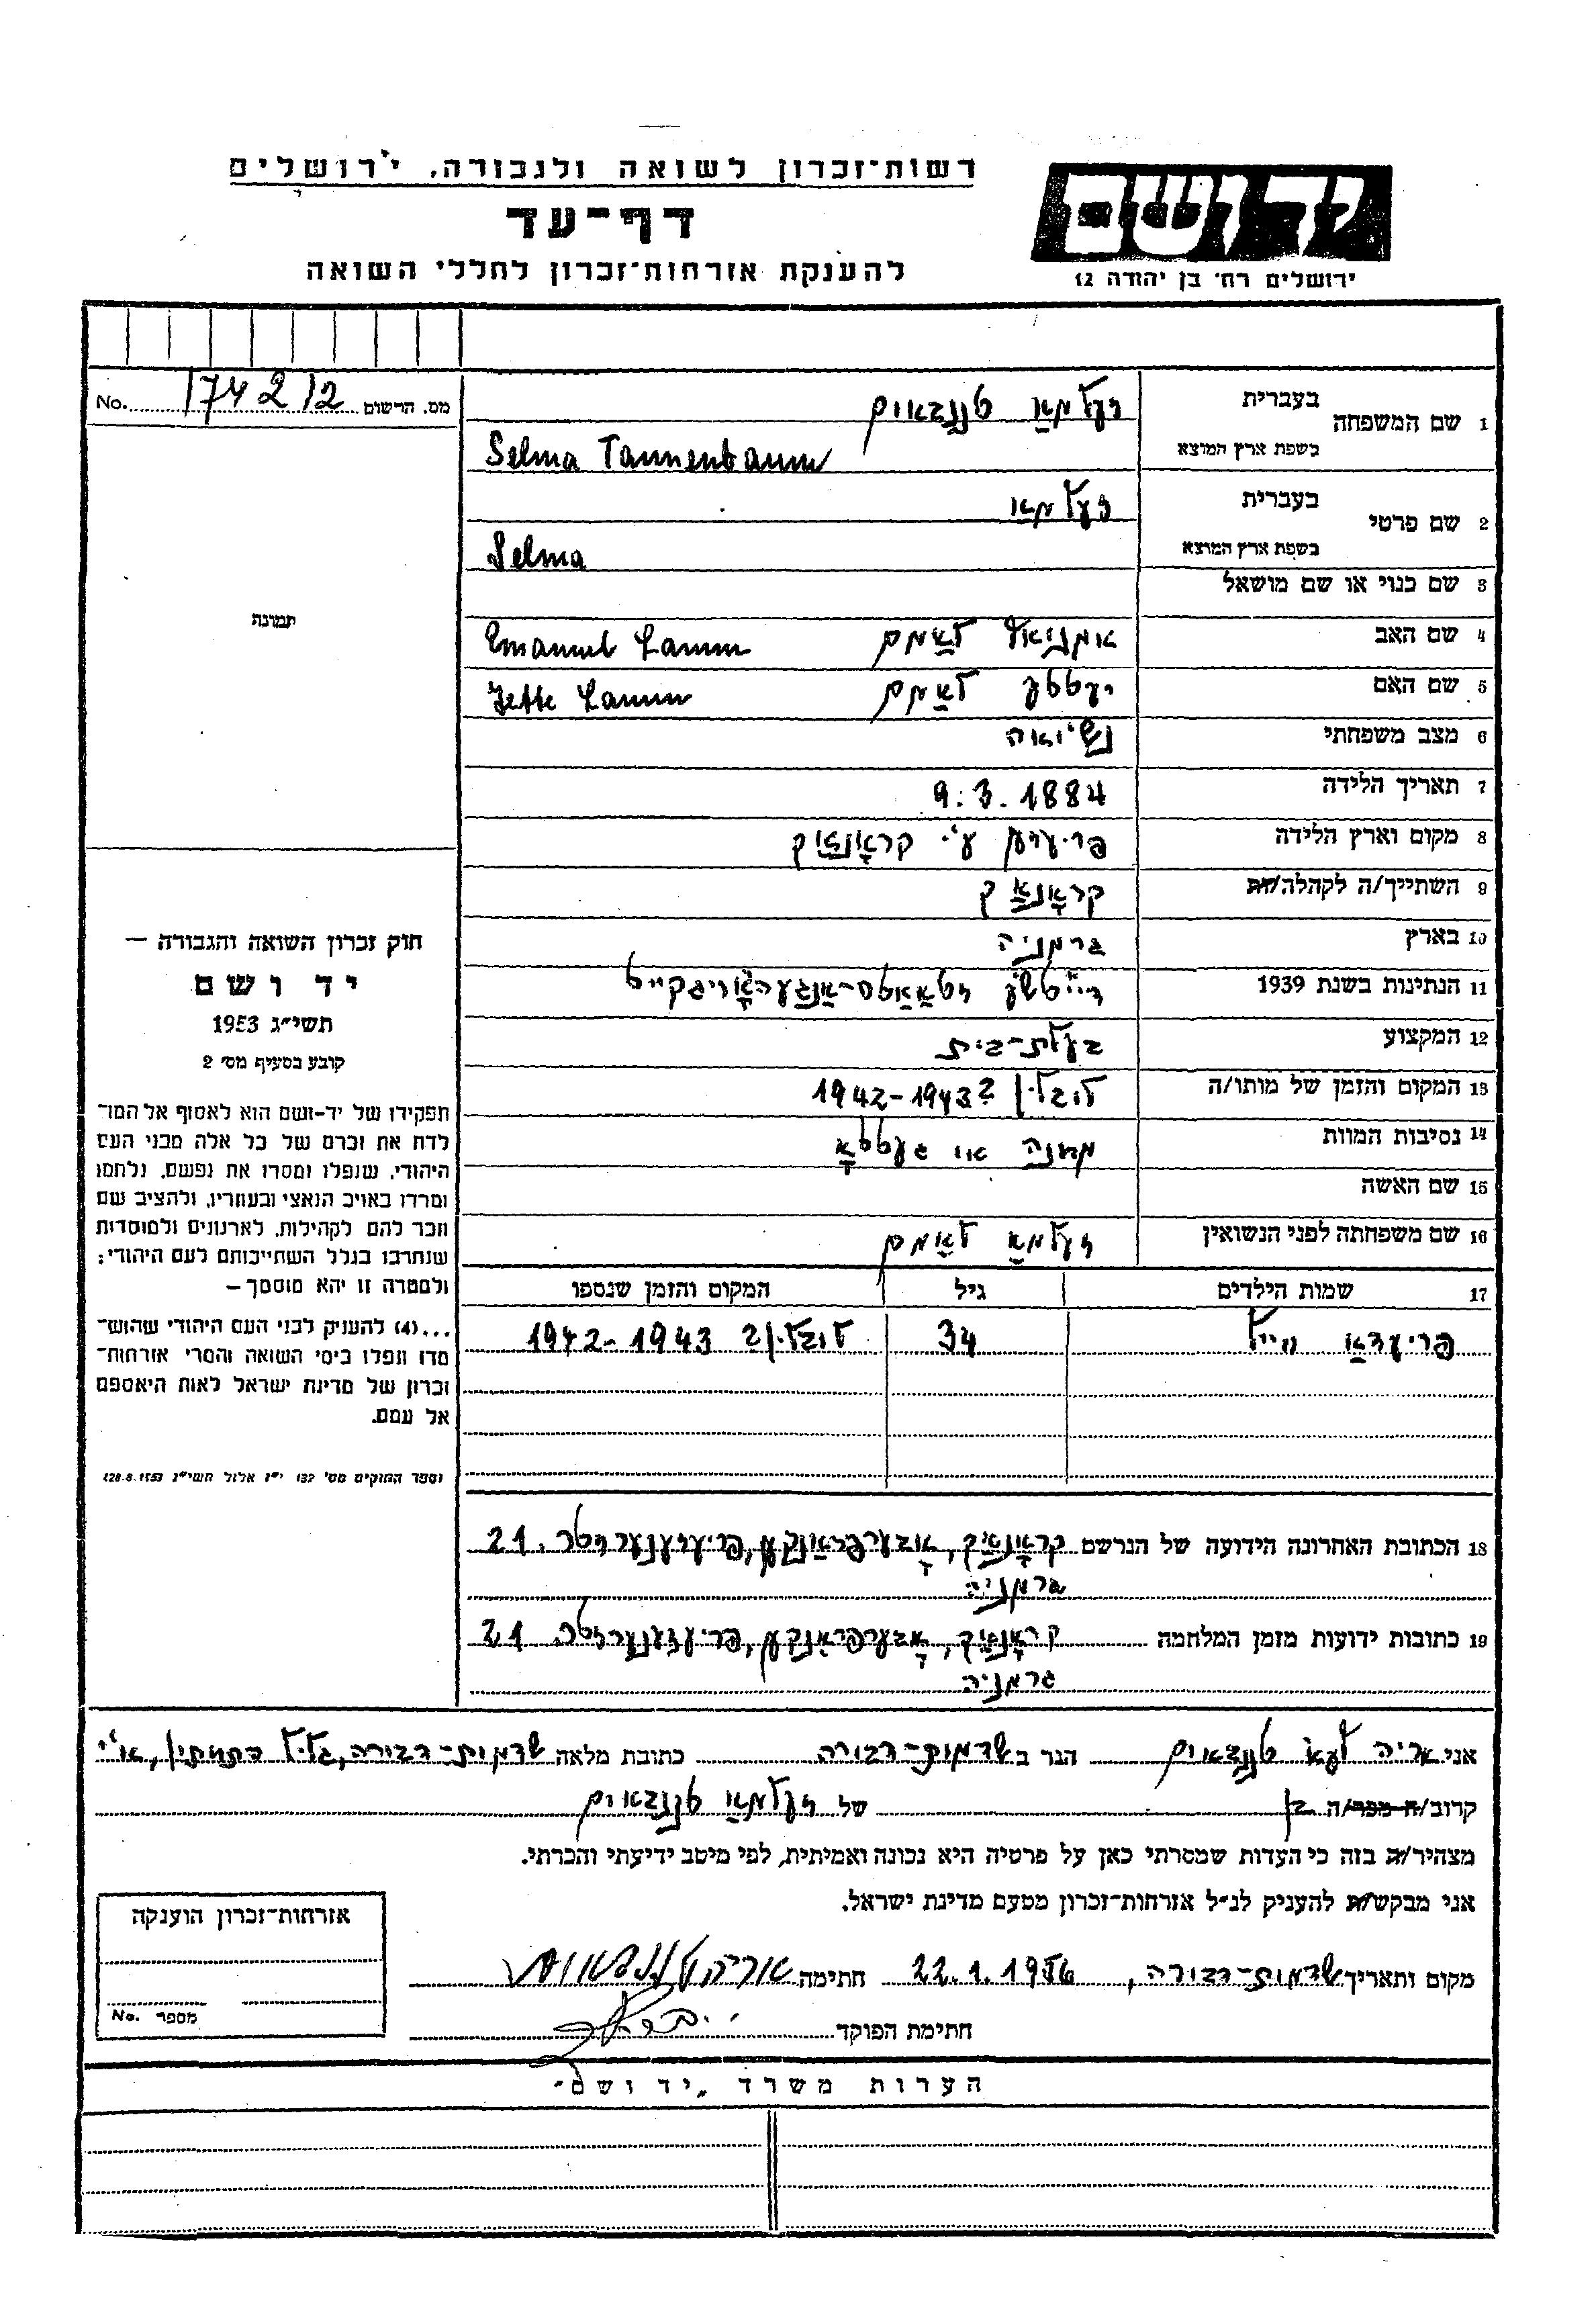 רשות־זכרון לשואה ולגבורה, ירושלים
דף־עד
להענקת אזרחות־זכרון לחללי השואה
יד ושם
ירושלים רח׳ בן יהודה 12
מס. הרשום 174212 No.
1 שם המשפחה בעברית זעלמאַ טננבאום
בשפת ארץ המוצא Selma Tannenbaum
2 שם פרטי בעברית זעלמאַ
בשפת ארץ המוצא Selma
3 שם כנוי או שם מושאל
4 שם האב עמנואל לאַמם Emanuel Lamm
5 שם האם יעטטע לאַמם Jette Lamm
6 מצב משפחתי נשיואה
7 תאריך הלידה 9.3.1884
8 מקום וארץ הלידה
9 השתייך/ה לקהלה/ות קראָנאַך
10 בארץ גרמניה
11 הנתינות בשנת 1939
12 המקצוע בעלת־בית
13 המקום והזמן של מותו/ה לובלין? 1942-1943
14 נסיבות המוות מחנה או געטטאָ
15 שם האשה
16 שם משפחתה לפני הנשואין זעלמאַ לאַמם
17 שמות הילדים גיל המקום והזמן שנספו
פריעדאַ 34 לובלין? 1942-1943
18 הכתובת האחרונה הידועה של הנרשם קראָנאַך, אָבערפראַנקען, 21
גרמניה
19 כתובות ידועות מזמן המלחמה קראָנאַך, אָבערפראַנקען, 21
גרמניה
תמונה
חוק זכרון השואה והגבורה —
יד ושם
תשי״ג 1953
קובע בסעיף מס׳ 2
תפקידו של יד־ושם הוא לאסוף אל המו־
לדת את זכרם של כל אלה מבני העם
היהודי, שנפלו ומסרו את נפשם, נלחמו
ומרדו באויב הנאצי ובעוזריו, ולהציב שם
וזכר להם לקהילות, לארגונים ולמוסדות
שנחרבו בגלל השתייכותם לעם היהודי;
ולמטרה זו יהא מוסמך —
...(4) להעניק לבני העם היהודי שהוש־
מדו ונפלו בימי השואה והמרי אזרחות־
זכרון של מדינת ישראל לאות היאספם
אל עמם.
(ספר החוקים מס׳ 132 י״ז אלול תשי״ג 28.8.1953)
אני אריה לעאָ טננבאום הגר ב שדמות־דבורה כתובת מלאה שדמות־דבורה, גליל התחתון, א״י
קרוב/ה מכר/ה בן של זעלמאַ טננבאום
מצהיר/ה בזה כי העדות שמסרתי כאן על פרטיה היא נכונה ואמיתית, לפי מיטב ידיעתי והכרתי.
אני מבקש/ת להעניק לנ״ל אזרחות־זכרון מטעם מדינת ישראל.
מקום ותאריך שדמות־דבורה, 22.1.1956 חתימה אריה טננבאום
חתימת הפוקד
אזרחות־זכרון הוענקה
מספר No.
הערות משרד „יד ושם״